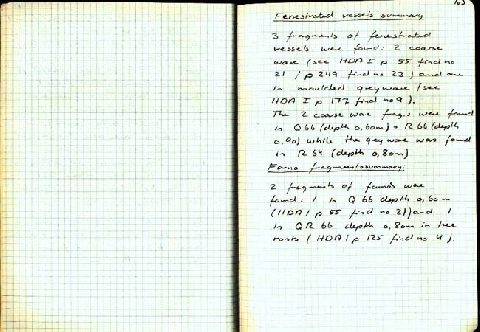 163
Fenestrated vessels summary
3 fragments of fenestrated
vessels were found: 2 coarse
ware (see HDA I p 55 find no
21 / p 249 find no 23) and one
in greyware (see
HDA I p 177 find no 9).
The 2 coarse ware frags were found
in Q 66 (depth 0,60m) + R 66 (depth
while the greyware was found
in R 64 (depth 0,80m)
fragments summary:
2 fragments of were
found: 1 in Q 66 depth 0,60m
(HDA I p 55 find no 21) and 1
in QR 66 depth 0,80m in tree
roots (HDA I p 125 find no 4).